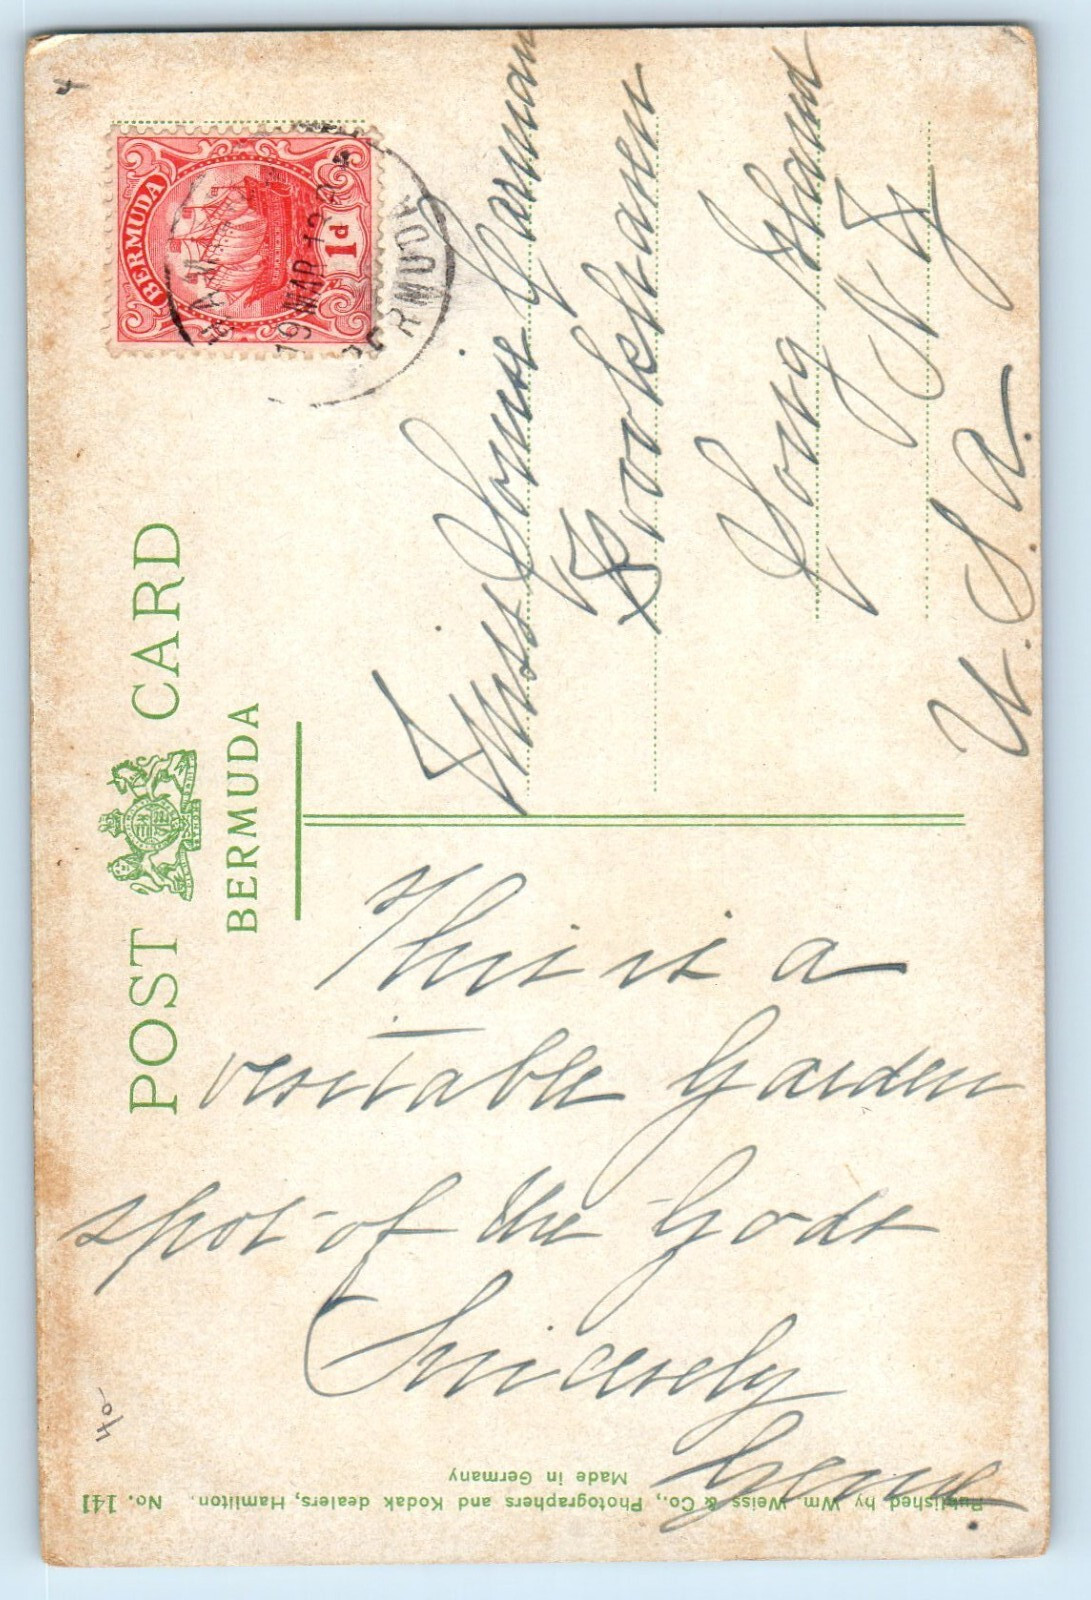 POST CARD
BERMUDA
BERMUDA
1d
19 MAR 12
BERMUDA
Miss Louise Garman
Brookhaven
Long Island
N Y
U. S. A.
This is a
vesitable Garden
spot of the Gods
Sincerely
Gene
40-
Published by Wm. Weiss & Co., Photographers and Kodak dealers, Hamilton. No. 141
Made in Germany